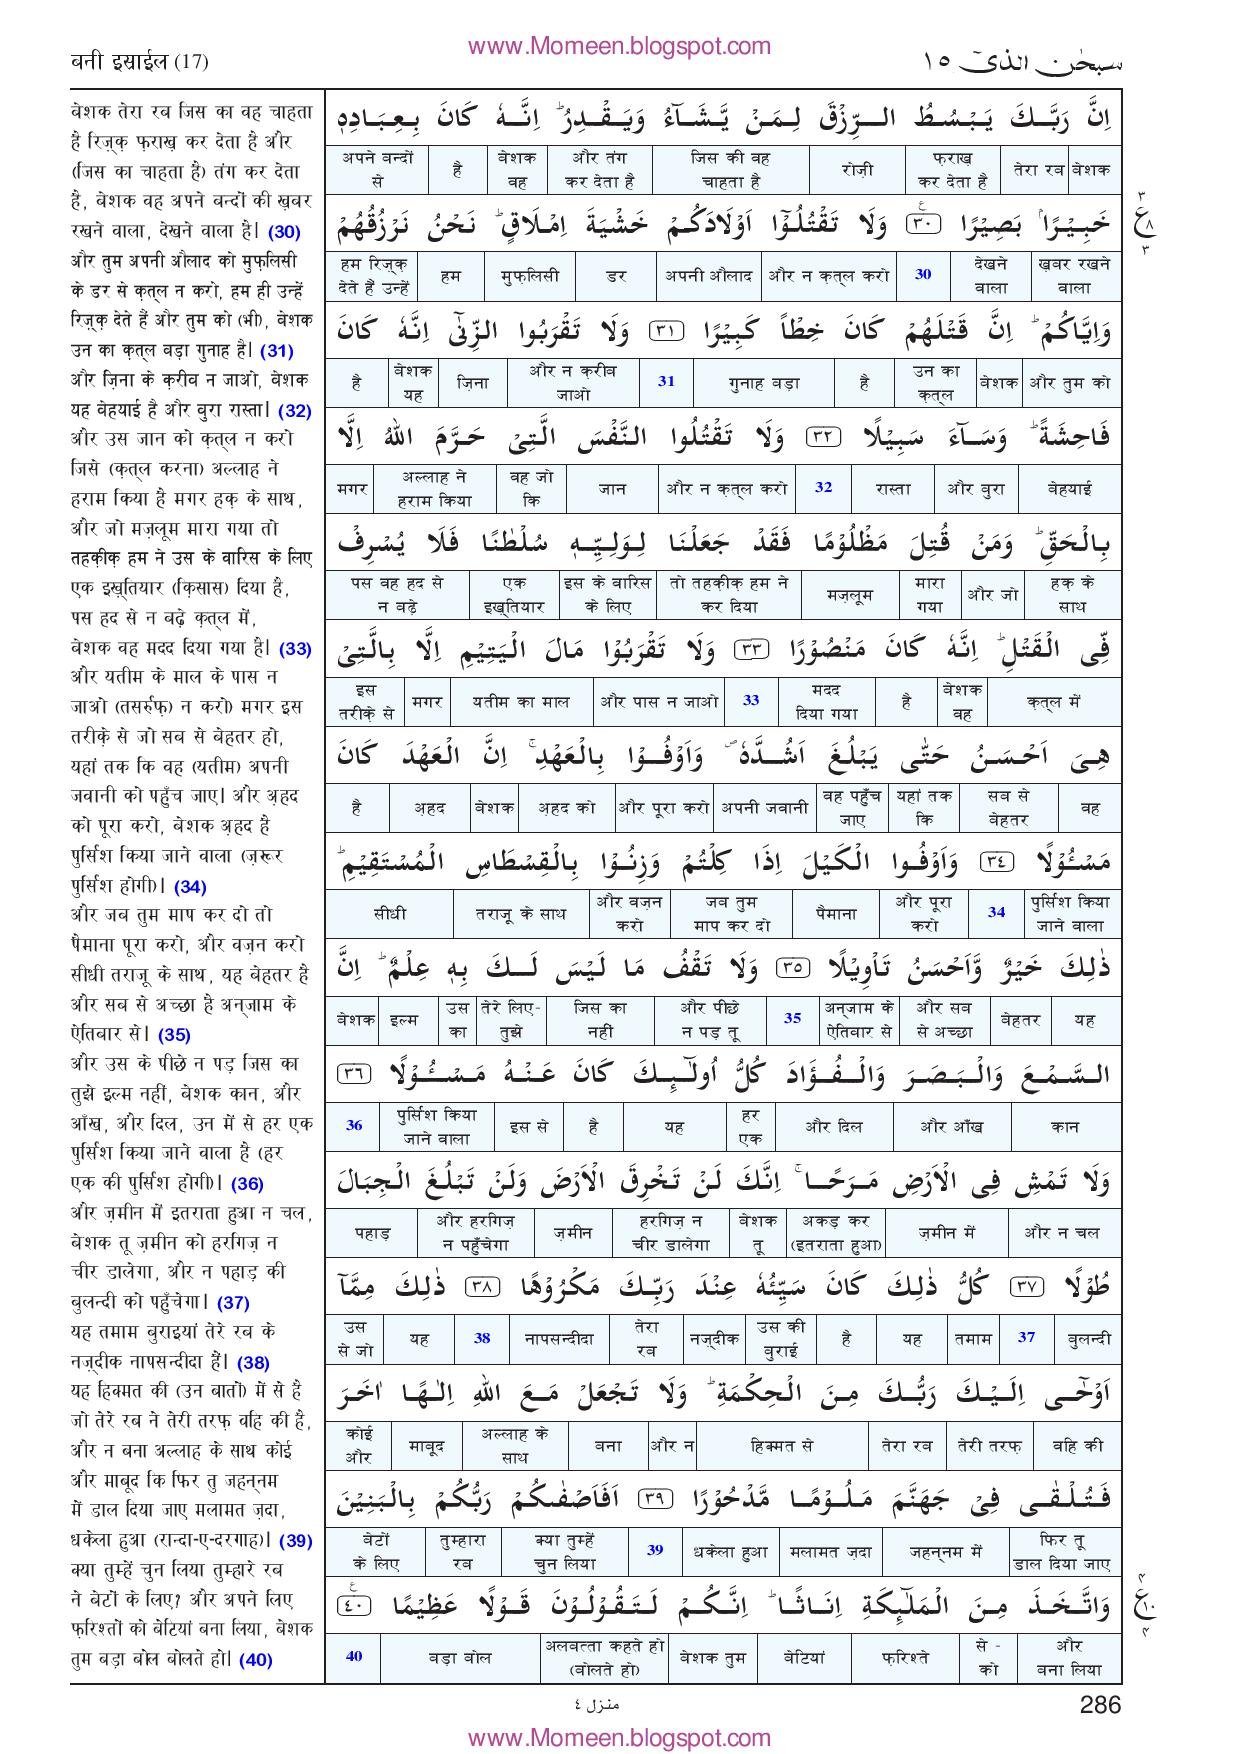 www.Momeen.blogspot.com
बनी इस्राईल (17)
سبحٰن الذی ١٥
बेशक तेरा रब जिस का वह चाहता
है रिज़्क़ फ़राख़ कर देता है और
(जिस का चाहता है) तंग कर देता
है, बेशक वह अपने बन्दों की ख़बर
रखने वाला, देखने वाला है। (30)
और तुम अपनी औलाद को मुफ़लिसी
के डर से क़त्ल न करो, हम ही उन्हें
रिज़्क़ देते हैं और तुम को (भी), बेशक
उन का क़त्ल बड़ा गुनाह है। (31)
और ज़िना के क़रीब न जाओ, बेशक
यह बेहयाई है और बुरा रास्ता। (32)
और उस जान को क़त्ल न करो
जिसे (क़त्ल करना) अल्लाह ने
हराम किया है मगर हक़ के साथ,
और जो मज़लूम मारा गया तो
तहक़ीक़ हम ने उस के वारिस के लिए
एक इख़्तियार (क़िसास) दिया है,
पस हद से न बढ़े क़त्ल में,
बेशक वह मदद दिया गया है। (33)
और यतीम के माल के पास न
जाओ (तसर्रुफ़) न करो) मगर इस
तरीक़े से जो सब से बेहतर हो,
यहां तक कि वह (यतीम) अपनी
जवानी को पहुँच जाए। और अ़हद
को पूरा करो, बेशक अ़हद है
पुर्सिश किया जाने वाला (ज़रूर
पुर्सिश होगी)। (34)
और जब तुम माप कर दो तो
पैमाना पूरा करो, और वज़न करो
सीधी तराजू के साथ, यह बेहतर है
और सब से अच्छा है अन्जाम के
ऐतिबार से। (35)
और उस के पीछे न पड़ जिस का
तुझे इल्म नहीं, बेशक कान, और
आँख, और दिल, उन में से हर एक
पुर्सिश किया जाने वाला है (हर
एक की पुर्सिश होगी)। (36)
और ज़मीन में इतराता हुआ न चल,
बेशक तू ज़मीन को हरगिज़ न
चीर डालेगा, और न पहाड़ की
बुलन्दी को पहुँचेगा। (37)
यह तमाम बुराइयां तेरे रब के
नज़्दीक नापसन्दीदा हैं। (38)
यह हिक्मत की (उन बातों) में से है
जो तेरे रब ने तेरी तरफ़ वहि की है,
और न बना अल्लाह के साथ कोई
और माबूद कि फिर तु जहन्नम
में डाल दिया जाए मलामत ज़दा,
धकेला हुआ (रान्दा-ए-दरगाह)। (39)
क्या तुम्हें चुन लिया तुम्हारे रब
ने बेटों के लिए? और अपने लिए
फ़रिश्तों को बेटियां बना लिया, बेशक
तुम बड़ा बोल बोलते हो। (40)
اِنَّ رَبَّكَ يَبْسُطُ الرِّزْقَ لِمَنْ يَّشَآءُ وَيَقْدِرُ ؕ اِنَّهٗ كَانَ بِعِبَادِهٖ
बेशक तेरा रब फ़राख़ कर देता है रोज़ी जिस की वह चाहता है और तंग कर देता है बेशक वह है अपने बन्दों से
خَبِيْرًۢا بَصِيْرًا ۝٣٠ وَلَا تَقْتُلُوْٓا اَوْلَادَكُمْ خَشْيَةَ اِمْلَاقٍ ؕ نَحْنُ نَرْزُقُهُمْ
ख़बर रखने वाला देखने वाला 30 और न क़त्ल करो अपनी औलाद डर मुफ़लिसी हम हम रिज़्क़ देते हैं उन्हें
وَاِيَّاكُمْ ؕ اِنَّ قَتْلَهُمْ كَانَ خِطْاً كَبِيْرًا ۝٣١ وَلَا تَقْرَبُوا الزِّنٰٓى اِنَّهٗ كَانَ
और तुम को बेशक उन का क़त्ल है गुनाह बड़ा 31 और न क़रीब जाओ ज़िना बेशक यह है
فَاحِشَةً ؕ وَسَآءَ سَبِيْلًا ۝٣٢ وَلَا تَقْتُلُوا النَّفْسَ الَّتِىْ حَرَّمَ اللّٰهُ اِلَّا
बेहयाई और बुरा रास्ता 32 और न क़त्ल करो जान वह जो कि अल्लाह ने हराम किया मगर
بِالْحَقِّ ؕ وَمَنْ قُتِلَ مَظْلُوْمًا فَقَدْ جَعَلْنَا لِوَلِيِّهٖ سُلْطٰنًا فَلَا يُسْرِفْ
हक़ के साथ और जो मारा गया मज़लूम तो तहक़ीक़ हम ने कर दिया इस के वारिस के लिए एक इख़्तियार पस वह हद से न बढ़े
فِّى الْقَتْلِ ؕ اِنَّهٗ كَانَ مَنْصُوْرًا ۝٣٣ وَلَا تَقْرَبُوْا مَالَ الْيَتِيْمِ اِلَّا بِالَّتِىْ
क़त्ल में बेशक वह है मदद दिया गया 33 और पास न जाओ यतीम का माल मगर इस तरीक़े से
هِىَ اَحْسَنُ حَتّٰى يَبْلُغَ اَشُدَّهٗ ۪ وَاَوْفُوْا بِالْعَهْدِ ۚ اِنَّ الْعَهْدَ كَانَ
वह सब से बेहतर यहां तक कि वह पहुँच जाए अपनी जवानी और पूरा करो अ़हद को बेशक अ़हद है
مَسْـُٔوْلًا ۝٣٤ وَاَوْفُوا الْكَيْلَ اِذَا كِلْتُمْ وَزِنُوْا بِالْقِسْطَاسِ الْمُسْتَقِيْمِ ؕ
पुर्सिश किया जाने वाला 34 और पूरा करो पैमाना जब तुम माप कर दो और वज़न करो तराजू के साथ सीधी
ذٰلِكَ خَيْرٌ وَّاَحْسَنُ تَاْوِيْلًا ۝٣٥ وَلَا تَقْفُ مَا لَيْسَ لَكَ بِهٖ عِلْمٌ ؕ اِنَّ
यह बेहतर और सब से अच्छा अन्जाम के ऐतिबार से 35 और पीछे न पड़ तू जिस का नही तेरे लिए-तुझे उस का इल्म बेशक
السَّمْعَ وَالْبَصَرَ وَالْفُؤَادَ كُلُّ اُولٰٓئِكَ كَانَ عَنْهُ مَسْـُٔوْلًا ۝٣٦
कान और आँख और दिल हर एक यह है इस से पुर्सिश किया जाने वाला 36
وَلَا تَمْشِ فِى الْاَرْضِ مَرَحًا ۚ اِنَّكَ لَنْ تَخْرِقَ الْاَرْضَ وَلَنْ تَبْلُغَ الْجِبَالَ
और न चल ज़मीन में अकड़ कर (इतराता हुआ) बेशक तू हरगिज़ न चीर डालेगा ज़मीन और हरगिज़ न पहुँचेगा पहाड़
طُوْلًا ۝٣٧ كُلُّ ذٰلِكَ كَانَ سَيِّئُهٗ عِنْدَ رَبِّكَ مَكْرُوْهًا ۝٣٨ ذٰلِكَ مِمَّآ
बुलन्दी 37 तमाम यह है उस की बुराई नज़्दीक तेरा रब नापसन्दीदा 38 यह उस से जो
اَوْحٰٓى اِلَيْكَ رَبُّكَ مِنَ الْحِكْمَةِ ؕ وَلَا تَجْعَلْ مَعَ اللّٰهِ اِلٰهًا اٰخَرَ
वहि की तेरी तरफ़ तेरा रब हिक्मत से और न बना अल्लाह के साथ माबूद कोई और
فَتُلْقٰى فِىْ جَهَنَّمَ مَلُوْمًا مَّدْحُوْرًا ۝٣٩ اَفَاَصْفٰىكُمْ رَبُّكُمْ بِالْبَنِيْنَ
फिर तू डाल दिया जाए जहन्नम में मलामत ज़दा धकेला हुआ 39 क्या तुम्हें चुन लिया तुम्हारा रब बेटों के लिए
وَاتَّخَذَ مِنَ الْمَلٰٓئِكَةِ اِنَاثًا ؕ اِنَّكُمْ لَتَقُوْلُوْنَ قَوْلًا عَظِيْمًا ۝٤٠
और बना लिया से - को फ़रिश्ते बेटियां बेशक तुम अलबत्ता कहते हो (बोलते हो) बड़ा बोल 40
٣
ع ٨
٣
٤
ع ١٠
٤
منزل ٤
286
www.Momeen.blogspot.com